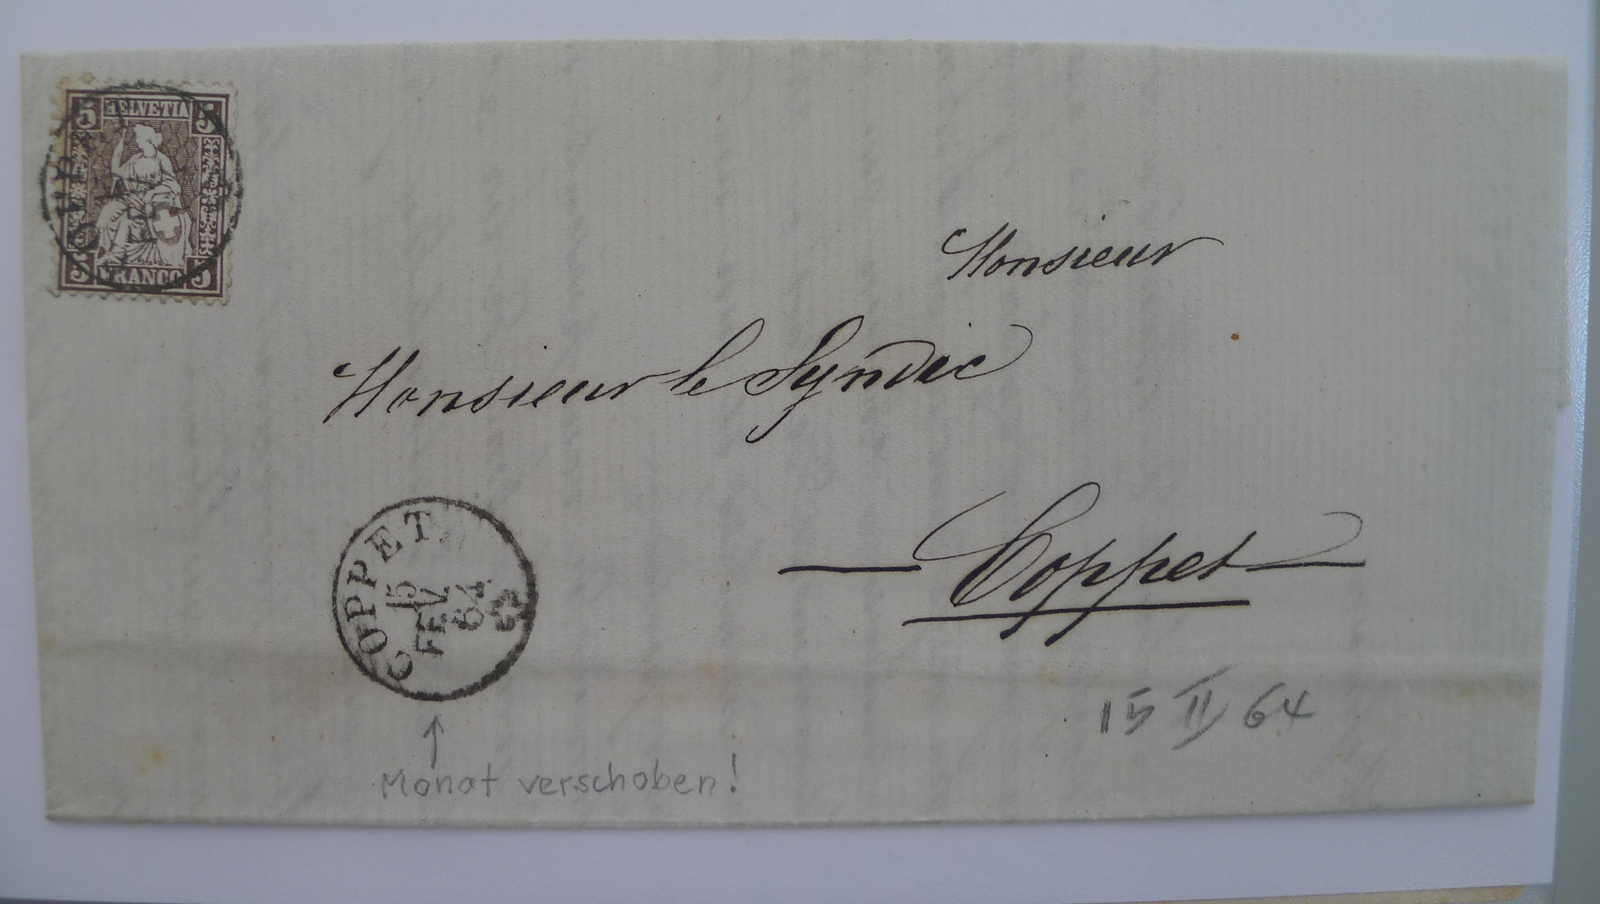 5 HELVETIA 5
5 FRANCO 5
Monsieur
Monsieur le Syndic
Coppet
COPPET
15
FEV
64
15 II 64
Monat verschoben!